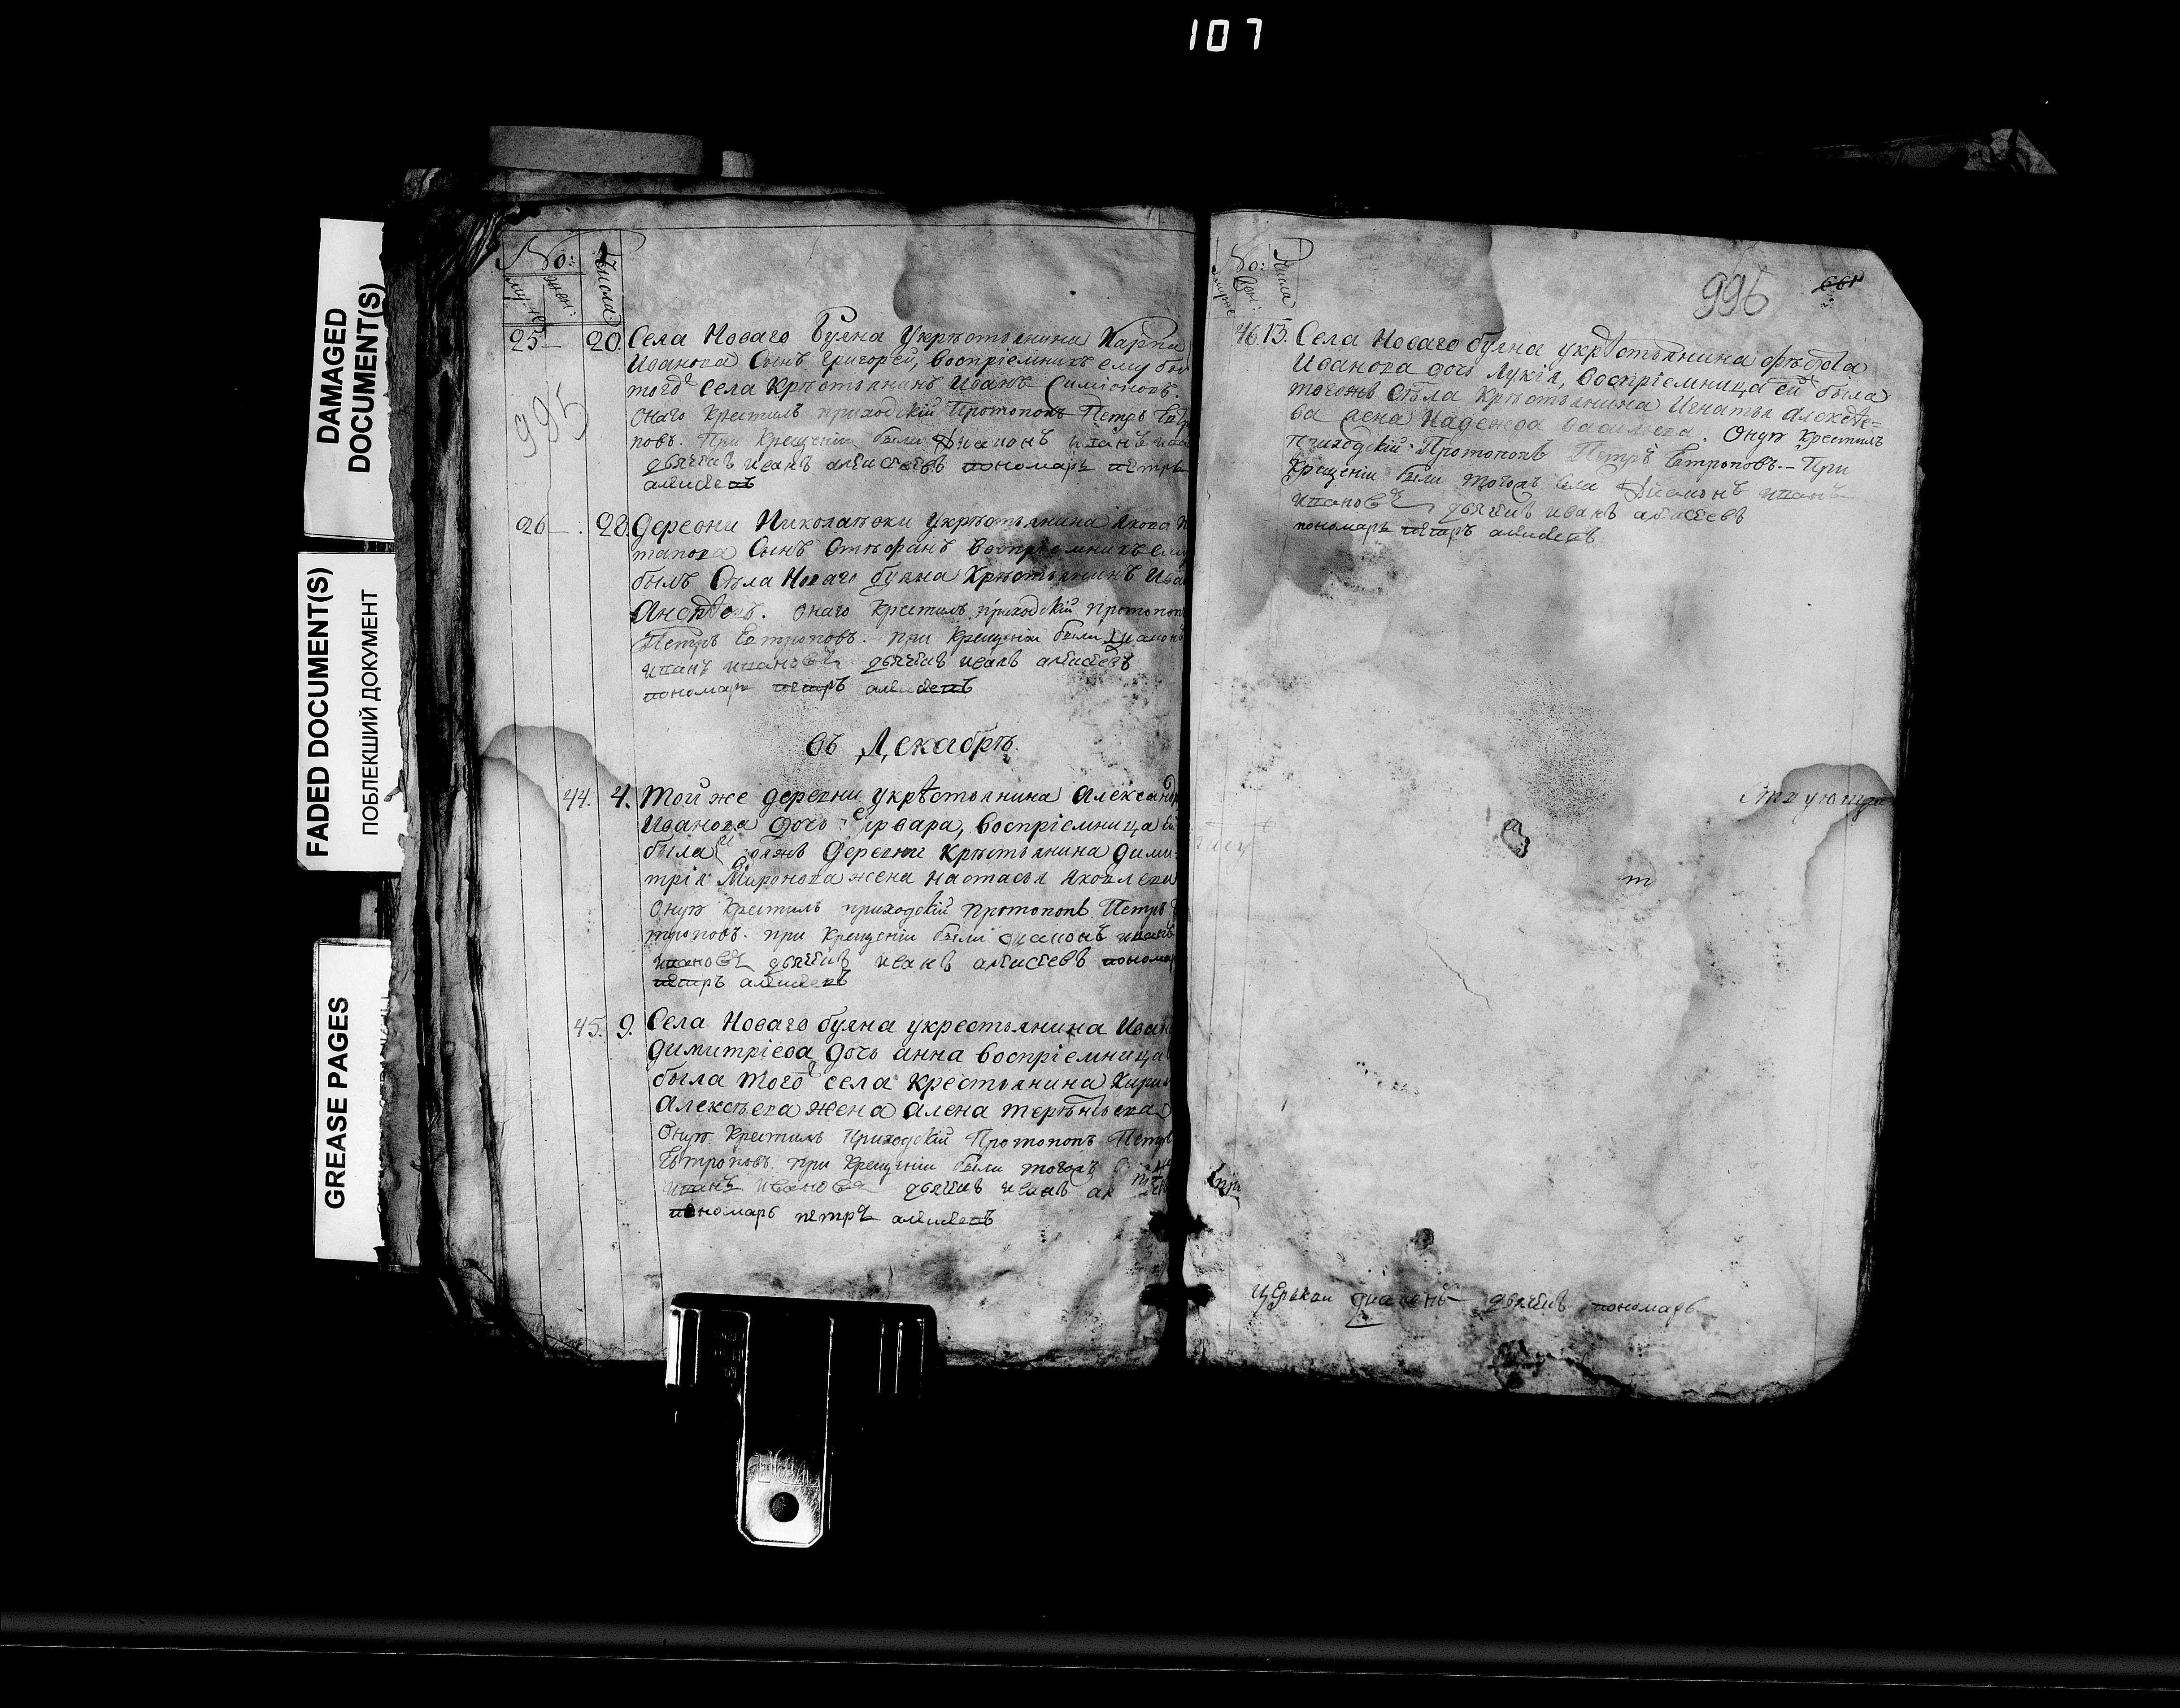 107
DAMAGED
DOCUMENT(S)
FADED DOCUMENT(S)
ПОБЛЕКШИЙ ДОКУМЕНТ
GREASE PAGES
No:
муж: жен: числа:
995
25 — 20. Села Новаго Буяна у крѣстьянина Карпа
Иванова Сынъ Григорей, воспріемникъ ему бы
тогоже села Крѣстьянинъ Иванъ Симіоновъ.
Онаго Крестилъ приходскій Протопопъ Петръ Ев
поповъ. При Крещеніи были Диаконъ иванъ
дьячекъ иванъ алексеевъ пономарь петръ
алексеевъ
26 — 28. Деревни Николаевки у крѣстьянина Якова
Сынъ Стѣфанъ воспріемникъ ему
былъ Сѣла Новаго буяна Крѣстьянинъ Ива
Онаго Крестилъ приходскій протопоп
Петръ Евтроповъ. При Крещеніи были Диаконъ
иванъ ивановъ дьячекъ иванъ алексеевъ
пономарь петръ алексеевъ
въ Декабрѣ
44. 4. Той же деревни у крѣстьянина Александр
Иванова дочь Варвара, воспріемница ей
была тояжъ деревни Крѣстьянина дими-
трія Миронова жена настасья яковлева
Оную Крестилъ приходскій протопопъ Петръ Ев
троповъ. при Крещеніи были диаконъ иванъ
ивановъ дьячекъ иванъ алексеевъ пономар
петръ алексеевъ
45. 9. Села Новаго буяна у крестьянина Иван
димитріева дочь анна воспріемница
была тогоже села крестьянина Кири
Алексѣева жена алена терѣнтьева
Оную Крестилъ Приходскій Протопопъ Петръ
Евтроповъ при Крещеніи были тогожъ
иванъ ивановъ дьячекъ иванъ ал
пономарь петръ алексеевъ
No: числа
996
661
46. 13. Села Новаго буяна у крѣстьянина
Иванова дочь Лукія, воспріемница ей была
тогожъ Сѣла Крѣстьянина Игнатья алексѣе-
ва жена Надежда васильева. Оную Крестилъ
Приходскій Протопопъ Петръ Евтроповъ. – При
Крещеніи были тогожъ села Диаконъ иванъ
ивановъ дьячекъ иванъ алексеевъ
пономарь петръ алексеевъ
церькви диаконъ дьячекъ пономарь